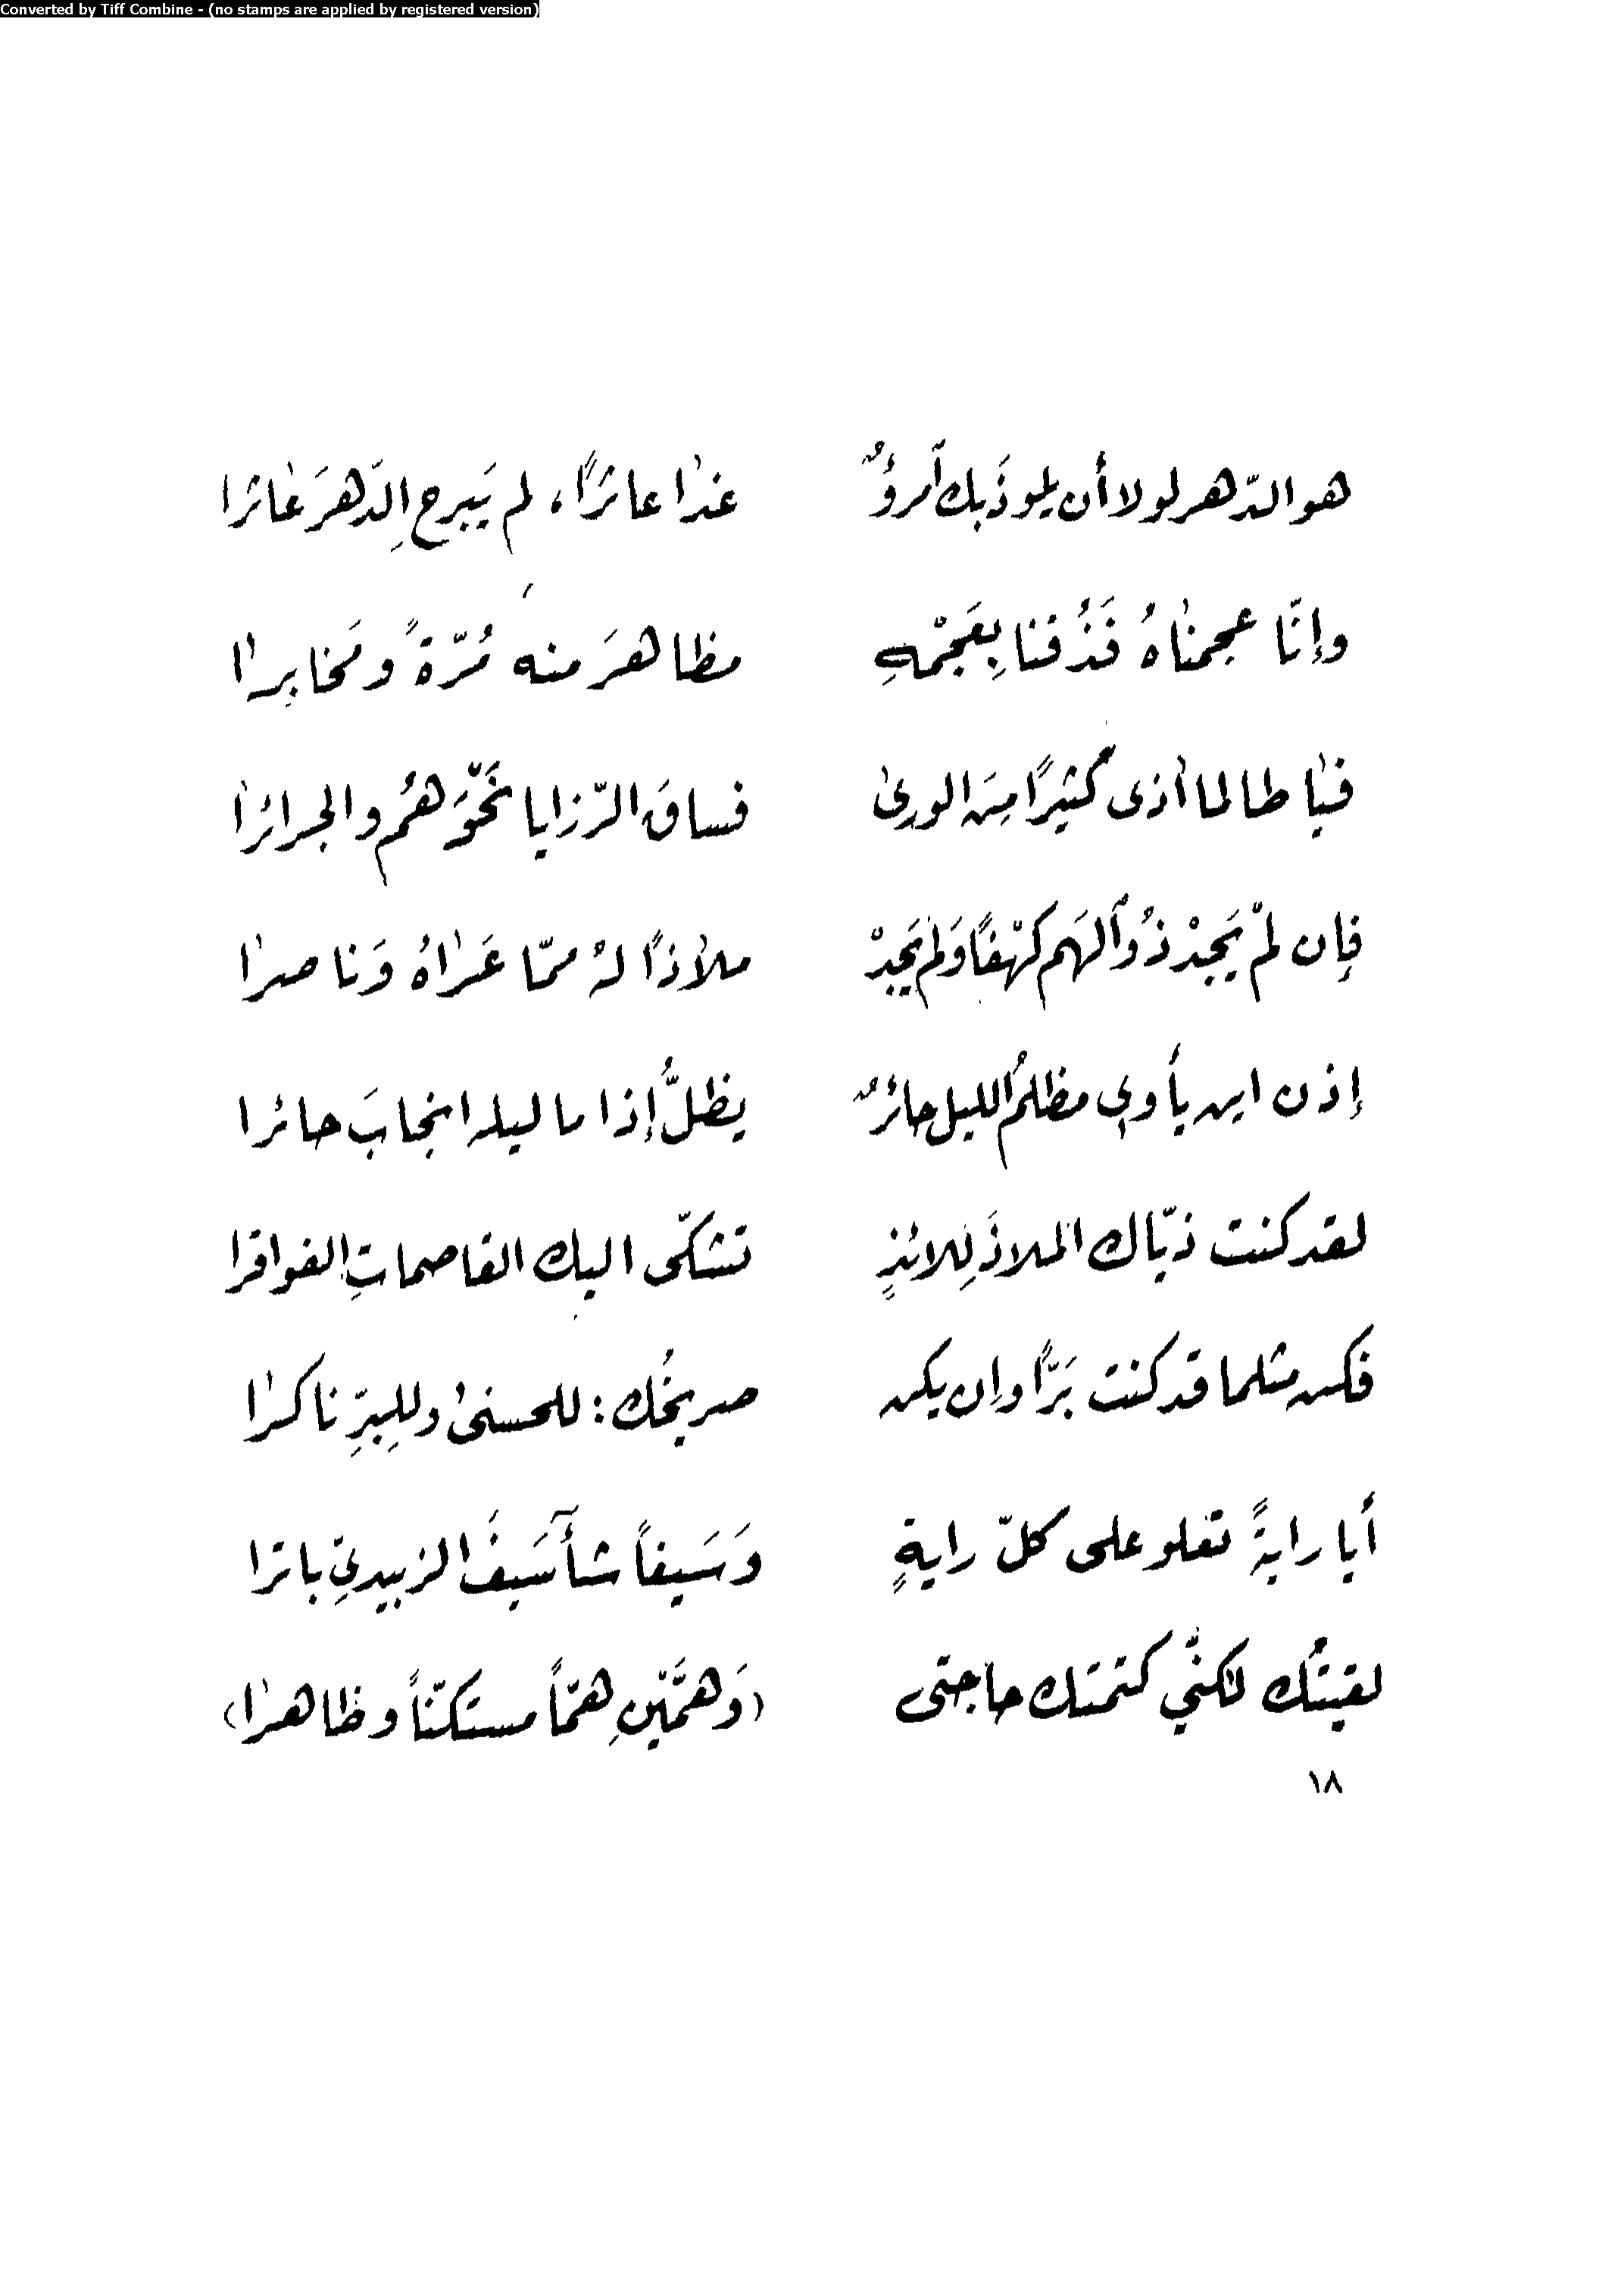 Converted by Tiff Combine - (no stamps are applied by registered version)
هو الدّهر لولا أن يلوذَ بك ٱمرؤٌ غدا عاثرًا، لم يَبرحِ الدّهرَ عاثرا
وإنّا عجمناهُ فَذُقنا بِعَجْمهِ مظاهرَ منه مُرّةً ومَخابرا
فيا طالما اذى كثيرًا مِنَ الورى فساقَ الرّزايا نَحْوَهُم والجرائرا
فإن لمْ يَجدْ ذُو ٱلهَم كهْفًا وَلم يَجدْ ملاذًا لهُ ممّا عَراهُ وَناصرا
إذن اين يأوي مظلمُ الليل حائرٌ يظلُّ إذا ما ليله انجابَ حائرا
لقد كنت ذيّاك الملاذَ لِلائذٍ تشكّى اليك القاصماتِ الفواقرا
فكن مثلما قد كنت بَرًّا وإن يكن صريخُك: للحسنى وللبِرِّ ناكرا
أيا رايةً تعلو على كلّ رايةٍ وَسَيفاً شأٓ سَيفَ الزبيديِّ باترا
لقيتُك لكنّي كتمتك حاجتى (وَهمَّينِ همّاً مستكنّاً وظاهرا)
١٨